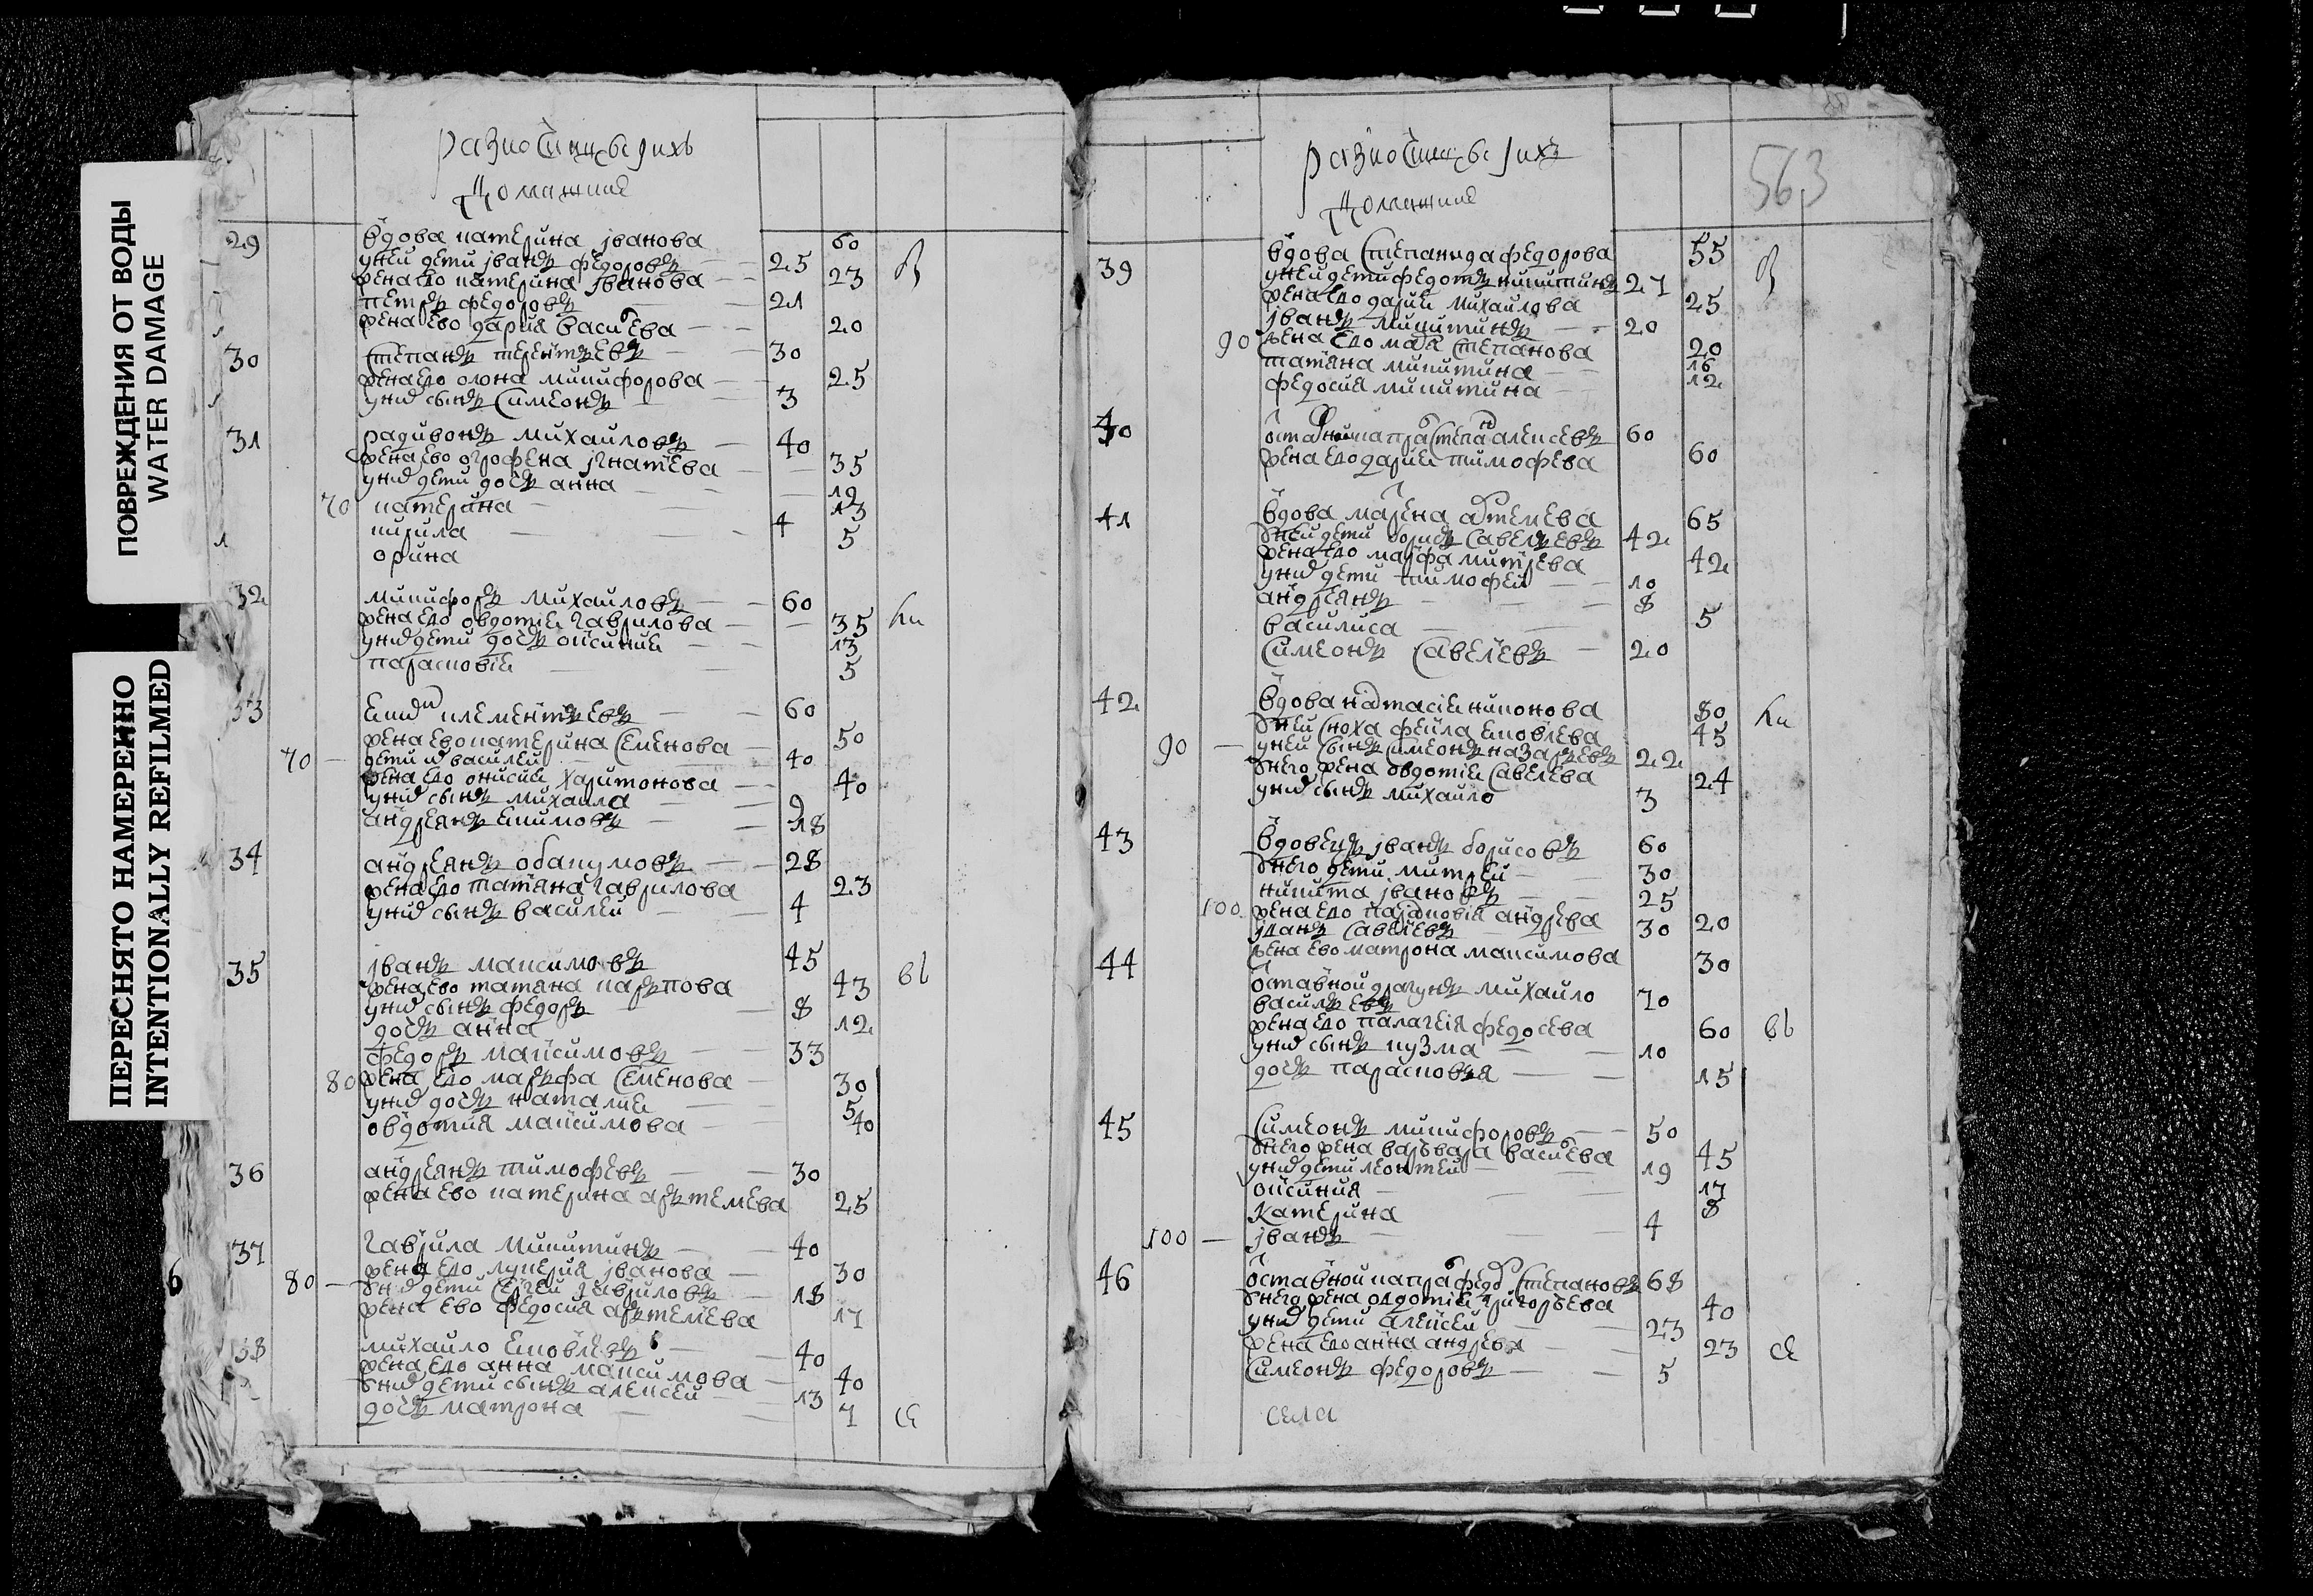 ПОВРЕЖДЕНИЯ ОТ ВОДЫ
WATER DAMAGE
ПЕРЕСНЯТО НАМЕРЕННО
INTENTIONALLY REFILMED
разночинцы и ихъ
домашние
29 вдова катерина іванова 60
у неи дети іванъ федоровъ 25
жена ево катерина іванова 23
петръ федоровъ 21
жена ево дария василева 20
30 степанъ терентьевъ 30
жена ево олона никифорова 25
у них сынъ симеонъ 3
31 радивонъ михаиловъ 40
жена ево огрофена ігнатева 35
у них дети дочь анна 19
70 катерина 13
кирила 4
орина 5
32 никифоръ михаиловъ 60
жена ево овдотия гаврилова 35
у них дети дочь оксиния 13
парасковия 5
33 еким клементьевъ 60
жена ево катерина семенова 50
70 дети их василеи 40
жена ево онисия харитонова 40
у них сынъ михаила 9
андреянъ екимовъ 18
34 андреянъ обакумовъ 28
жена ево татяна гаврилова 23
у них сынъ василеи 4
35 іванъ максимовъ 45
жена ево татяна карьпова 43
у них сынъ федоръ 8
дочь анна 12
федоръ максимовъ 33
80 жена ево марьфа семенова 30
у них дочь наталия 5
овдотия максимова 40
36 андреянъ тимофевъ 30
жена ево катерина арьтемева 25
37 гаврила никитинъ 40
жена ево лукерия іванова 30
80 у них дети сергеи гавриловъ 18
жена ево федосия арьтемева 17
38 михаило ековлевъ 40
жена ево анна максимова 40
у них дети сынъ алексеи 13
дочь матрона 7
разночинцы и ихъ
домашние
563
39 вдова степанида федорова 55
у неи дети федотъ никитинъ 27
жена ево дария михаилова 25
іванъ никитинъ 20
90 жена ево маря степанова 20
татяна никитина 16
федосия никитина 12
40 60
жена ево дария тимофева 60
41 вдова марена артемева 65
у неи дети борисъ савельевъ 42
жена ево марфа митрева 42
у них дети тимофеи 10
андреянъ 8
василиса 5
симеонъ савелевъ 20
42 вдова настасия никонова 80
у неи сноха фекла ековлева 45
90 у неи сынъ симеонъ назарьевъ 22
у него жена овдотия савелева 24
у них сынъ михаило 3
43 вдовецъ іванъ борисовъ 60
у него дети митреи 30
никита івановъ 25
100 жена ево парасковия андрева 20
іванъ савелевъ 30
жена ево матрона максимова 30
44 оставнои драгунъ михаило
васильевъ 70
жена ево палагея федосева 60
у них сынъ кузма 10
дочь парасковья 15
45 симеонъ никифоровъ 50
у него жена варьвара василева 45
у них дети леонтеи 19
оксиния 17
катерина 8
100 іванъ 4
46 оставнои капрал федор степановъ 68
у него жена овдотия григорьева 40
у них дети алексеи 23
жена ево анна андрева 23
симеонъ федоровъ 5
села